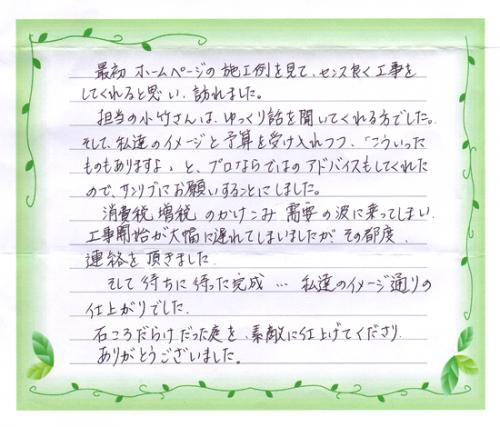 最初 ホームページの施工例を見て、センス良く工事を
してくれると思い、訪れました。
担当の小竹さんは、ゆっくり話を聞いてくれる方でした。
そして、私達のイメージと予算を受け入れつつ、「こういった
ものもありますよ」と、プロならではのアドバイスもしてくれた
ので、サンリブにお願いすることにしました。
消費税増税のかけこみ需要の波に乗ってしまい、
工事開始が大幅に遅れてしまいましたが、その都度、
連絡を頂きました。
そして待ちに待った完成… 私達のイメージ通りの
仕上がりでした。
石ころだらけだった庭を、素敵に仕上げてくださり、
ありがとうございました。